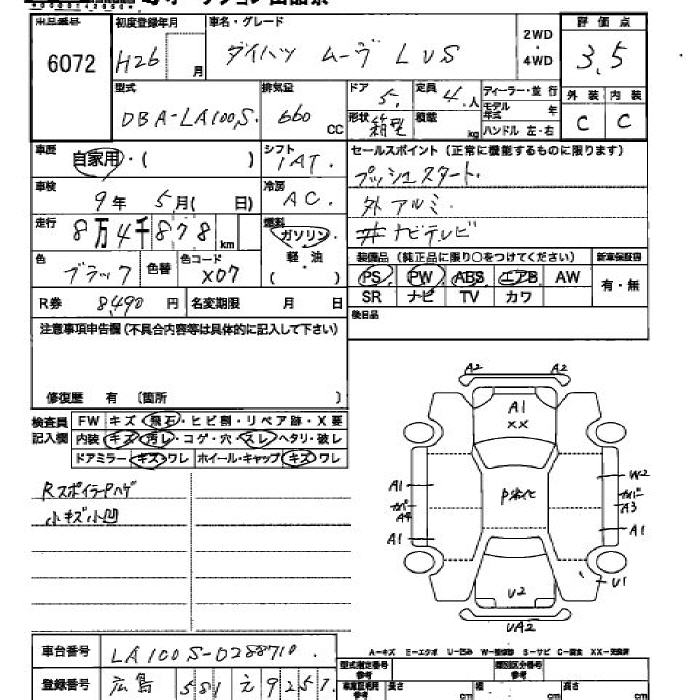 出品番号 初度登録年月 車名・グレード 2WD・4WD 評価点
6072 H26 月 ダイハツ ムーヴ LVS 3.5
型式 排気量 ドア 定員 ディーラー・並行 外装 内装
DBA-LA100S 660 CC 5 4 人 モデル年式 年 C C
形状 箱型 積載 kg ハンドル 左・右
車歴 自家用・( ) シフト IAT セールスポイント (正常に機能するものに限ります)
車検 9 年 5 月 ( 日) 冷房 AC プッシュスタート
走行 8万4千878 km 燃料 ガソリン・軽・油 ( ) 外アルミ
社ナビテレビ
色 ブラック 色替 色コード X07 装備品 (純正品に限り○をつけてください) 新車保証書
PS PW ABS エアB AW 有・無
R券 8,490 円 名変期限 月 日 SR ナビ TV カワ
注意事項申告欄 (不具合内容等は具体的に記入して下さい) 後日品
修復歴 有 〔箇所 〕
検査員記入欄 FW キズ・飛石・ヒビ割・リペア跡・X要
内装 キズ・汚レ・コゲ・穴・スレ・ヘタリ・破レ
ドアミラー キズ・ワレ ホイール・キャップ キズ・ワレ
Rスポイラーハゲ
小キズ小凹
A2 A2
A1
XX
A1 W2
カバー
A4 A3
A1 A1
U1
U2
UA2
A-キズ E-エクボ U-凹み W-補修跡 S-サビ C-腐食 XX-交換済
車台番号 LA100S-0288710
型式指定番号 類別区分番号
登録番号 広島 581 え 9257
長さ cm 幅 cm 高さ cm